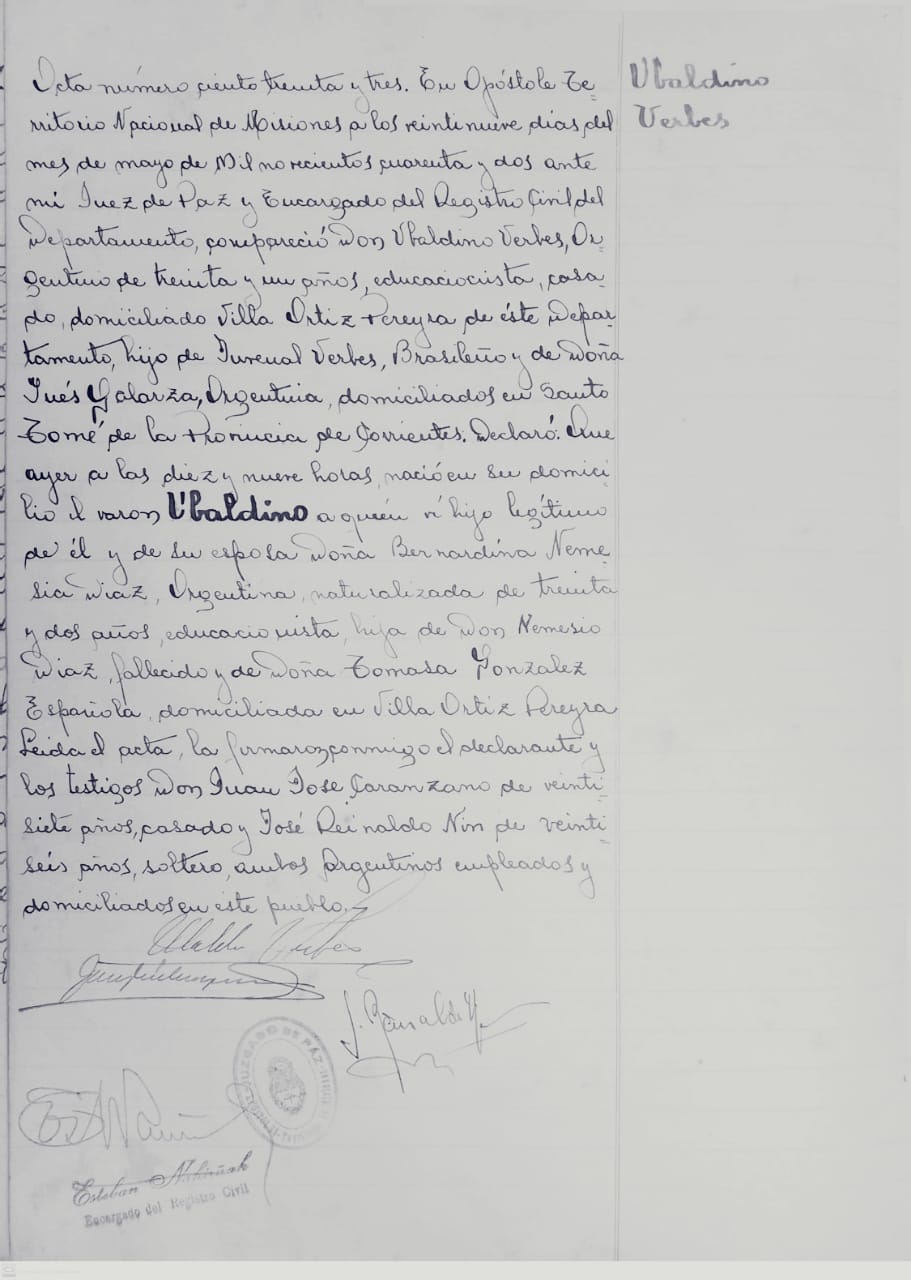 Ubaldino
Verbes
Acta número ciento treinta y tres. En Apóstole Te=
rritorio Nacional de Misiones a los veintinueve días del
mes de mayo de Mil novecientos cuarenta y dos ante
mí Juez de Paz y Encargado del Registro Civil del
Departamento, compareció Don Ubaldino Verbes, Ar=
gentino de treinta y un años, educacionista, casa=
do, domiciliado Villa Ortiz Pereyra de éste Depar=
tamento, hijo de Juvenal Verbes, Brasileño y de Doña
Inés Galarza, Argentina, domiciliados en Santo
Tomé de la Provincia de Corrientes. Declaró: Que
ayer a las diez y nueve horas, nació en su domici=
lio el varon Ubaldino a quién ví hijo legítimo
de él y de su esposa Doña Bernardina Neme=
sia Diaz, Argentina, naturalizada de treinta
y dos años, educacionista, hija de Don Nemesio
Diaz, fallecido y de Doña Tomasa Gonzalez
Española, domiciliada en Villa Ortiz Pereyra
Leida el acta, la firmaron conmigo el declarante y
los testigos Don Juan José Caranzano de veinti=
siete años, casado y José Reinaldo Nin de veinti=
séis años, soltero, ambos Argentinos empleados y
domiciliados en este pueblo.
JUZGADO DE PAZ
Esteban
Encargado del Registro Civil